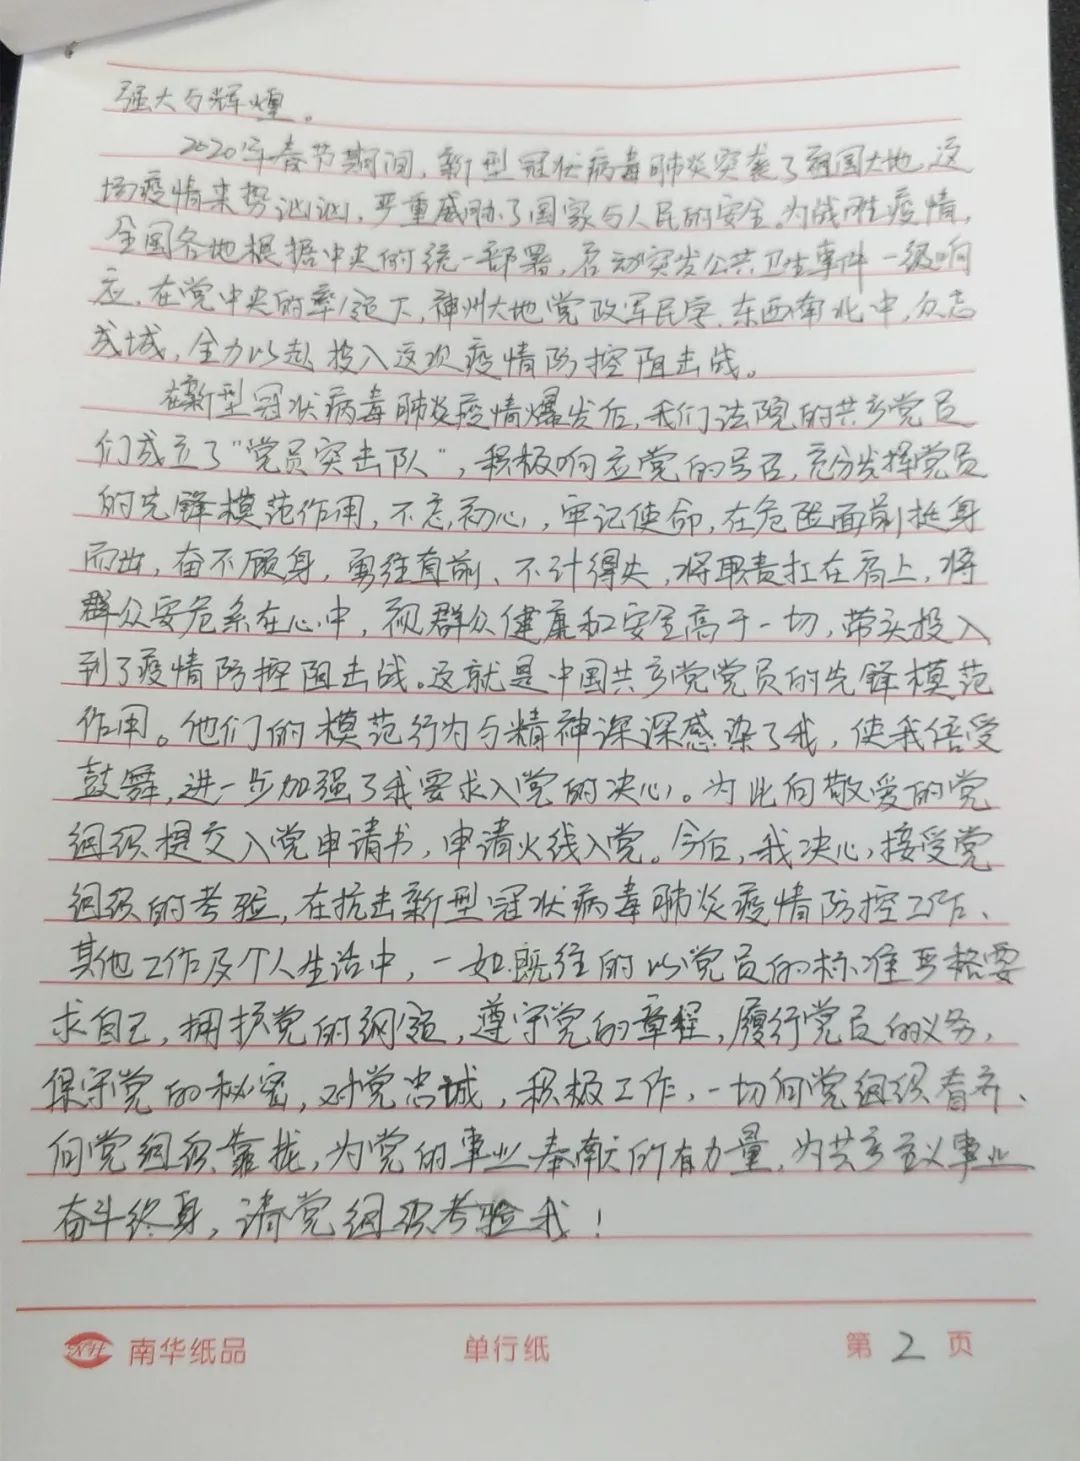 强大与辉煌。
2020年春节期间,新型冠状病毒肺炎突袭了祖国大地,这
场疫情来势汹汹,严重威胁了国家与人民的安全。为战胜疫情,
全国各地根据中央的统一部署,启动突发公共卫生事件一级响
应,在党中央的率领下,神州大地党政军民学、东西南北中,众志
成城,全力以赴投入这次疫情防控阻击战。
在新型冠状病毒肺炎疫情爆发后,我们法院的共产党员
们成立了"党员突击队",积极响应党的号召,充分发挥党员
的先锋模范作用,不忘初心,牢记使命,在危险面前挺身
而出,奋不顾身,勇往直前、不计得失,将职责扛在肩上,将
群众安危系在心中,视群众健康和安全高于一切,带头投入
到了疫情防控阻击战。这就是中国共产党党员的先锋模范
作用。他们的模范行为与精神深深感染了我,使我倍受
鼓舞,进一步加强了我要求入党的决心。为此向敬爱的党
组织提交入党申请书,申请火线入党。今后,我决心,接受党
组织的考验,在抗击新型冠状病毒肺炎疫情防控工作、
其他工作及个人生活中,一如既往的以党员的标准严格要
求自己,拥护党的纲领,遵守党的章程,履行党员的义务,
保守党的秘密,对党忠诚,积极工作,一切向党组织看齐、
向党组织靠拢,为党的事业奉献所有力量,为共产主义事业
奋斗终身,请党组织考验我!
南华纸品 单行纸 第2页